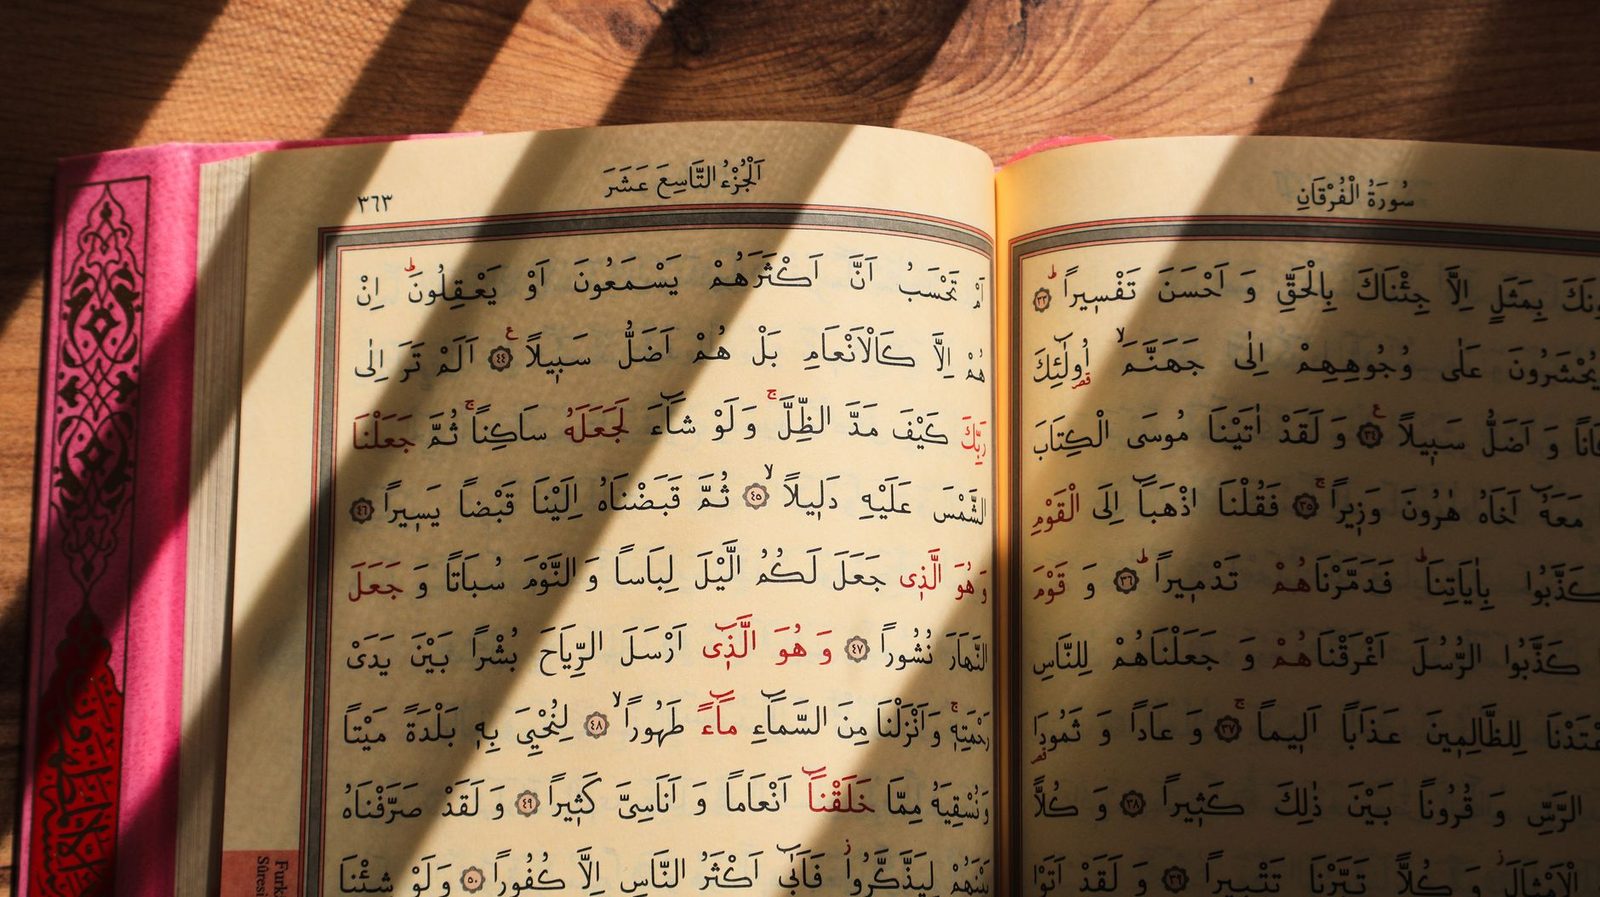 سُورَةُ الْفُرْقَانِ
بِمَثَلٍ اِلَّا جِئْنَاكَ بِالْحَقِّ وَ اَحْسَنَ تَفْسٖيراًۜ ﴿٣٣﴾
يُحْشَرُونَ عَلٰى وُجُوهِهِمْ اِلٰى جَهَنَّمَۙ اُولٰٓئِكَ
وَ اَضَلُّ سَبٖيلاًࣖ ﴿٣٤﴾ وَ لَقَدْ اٰتَيْنَا مُوسَى الْكِتَابَ
مَعَهُٓ اَخَاهُ هٰرُونَ وَزٖيراًۚ ﴿٣٥﴾ فَقُلْنَا اذْهَبَٓا اِلَى الْقَوْمِ
كَذَّبُوا بِاٰيَاتِنَاۜ فَدَمَّرْنَاهُمْ تَدْمٖيراًۜ ﴿٣٦﴾ وَ قَوْمَ
كَذَّبُوا الرُّسُلَ اَغْرَقْنَاهُمْ وَ جَعَلْنَاهُمْ لِلنَّاسِ
لِلظَّالِمٖينَ عَذَاباً اَلٖيماًۚ ﴿٣٧﴾ وَ عَاداً وَ ثَمُودَا
الرَّسِّ وَ قُرُوناً بَيْنَ ذٰلِكَ كَثٖيراً ﴿٣٨﴾ وَ كُلاًّ
الْاَمْثَالَؗ وَ كُلاًّ تَبَّرْنَا تَتْبٖيراً ﴿٣٩﴾ وَ لَقَدْ اَتَوْا
اَلْجُزْءُ التَّاسِعَ عَشَرَ
٣٦٣
اَمْ تَحْسَبُ اَنَّ اَكْثَرَهُمْ يَسْمَعُونَ اَوْ يَعْقِلُونَۜ اِنْ
هُمْ اِلَّا كَالْاَنْعَامِ بَلْ هُمْ اَضَلُّ سَبٖيلاًࣖ ﴿٤٤﴾ اَلَمْ تَرَ اِلٰى
رَبِّكَ كَيْفَ مَدَّ الظِّلَّۚ وَ لَوْ شَٓاءَ لَجَعَلَهُ سَاكِناًۚ ثُمَّ جَعَلْنَا
الشَّمْسَ عَلَيْهِ دَلٖيلاًۙ ﴿٤٥﴾ ثُمَّ قَبَضْنَاهُ اِلَيْنَا قَبْضاً يَسٖيراً ﴿٤٦﴾
وَ هُوَ الَّذٖى جَعَلَ لَكُمُ الَّيْلَ لِبَاساً وَ النَّوْمَ سُبَاتاً وَ جَعَلَ
النَّهَارَ نُشُوراً ﴿٤٧﴾ وَ هُوَ الَّذٖٓى اَرْسَلَ الرِّيَاحَ بُشْراً بَيْنَ يَدَىْ
رَحْمَتِهٖۚ وَ اَنْزَلْنَا مِنَ السَّمَٓاءِ مَٓاءً طَهُوراًۙ ﴿٤٨﴾ لِنُحْيِىَ بِهٖ بَلْدَةً مَيْتاً
وَ نُسْقِيَهُ مِمَّا خَلَقْنَٓا اَنْعَاماً وَ اَنَاسِىَّ كَثٖيراً ﴿٤٩﴾ وَ لَقَدْ صَرَّفْنَاهُ
بَيْنَهُمْ لِيَذَّكَّرُواؗ فَاَبٰٓى اَكْثَرُ النَّاسِ اِلَّا كُفُوراً ﴿٥٠﴾ وَ لَوْ شِئْنَا
Sûresi